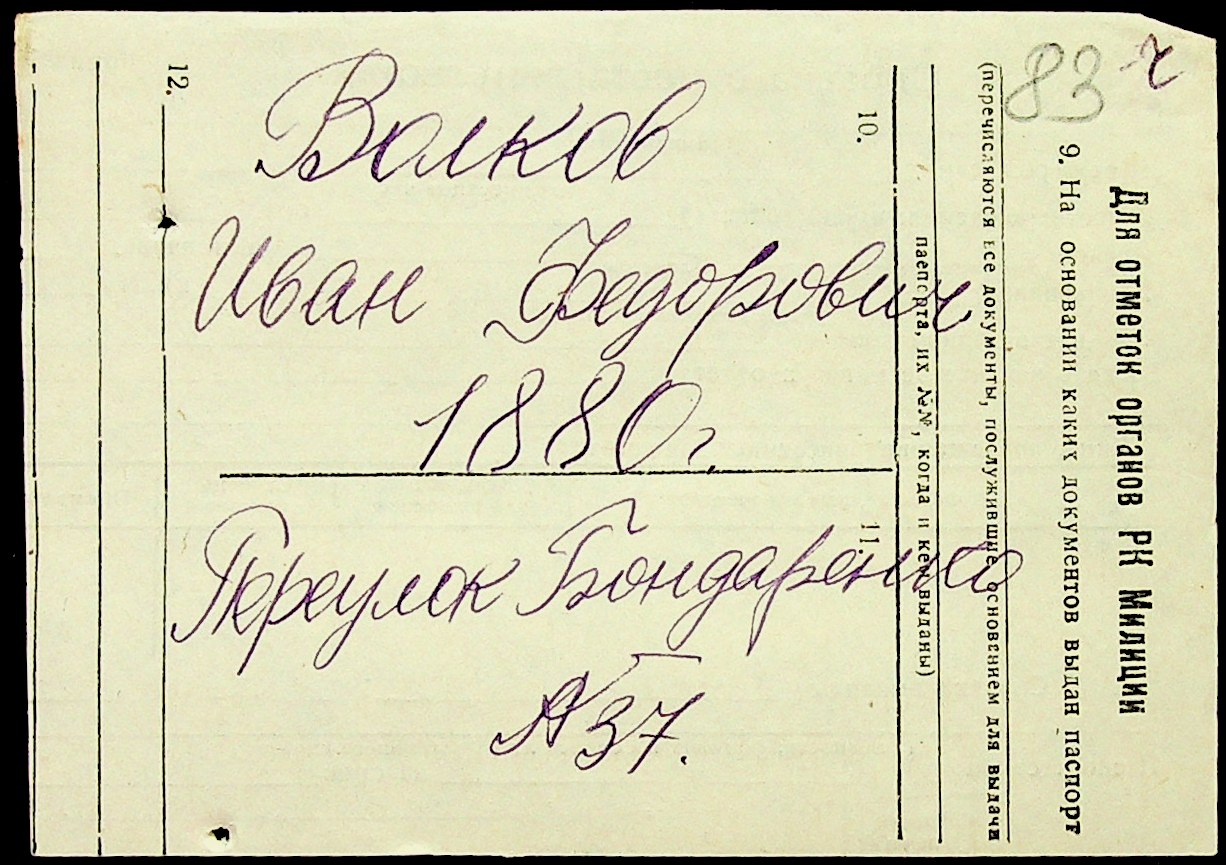 83
ч
Волков
Иван Федорович
1880г.
Переулок Бондаренко
№37.
Для отметок органов РК Милиции
9. На основании каких документов выдан паспорт
(перечисляются все документы, послужившие основанием для выдачи
паспорта, их №№, когда и кем выданы)
10.
11.
12.